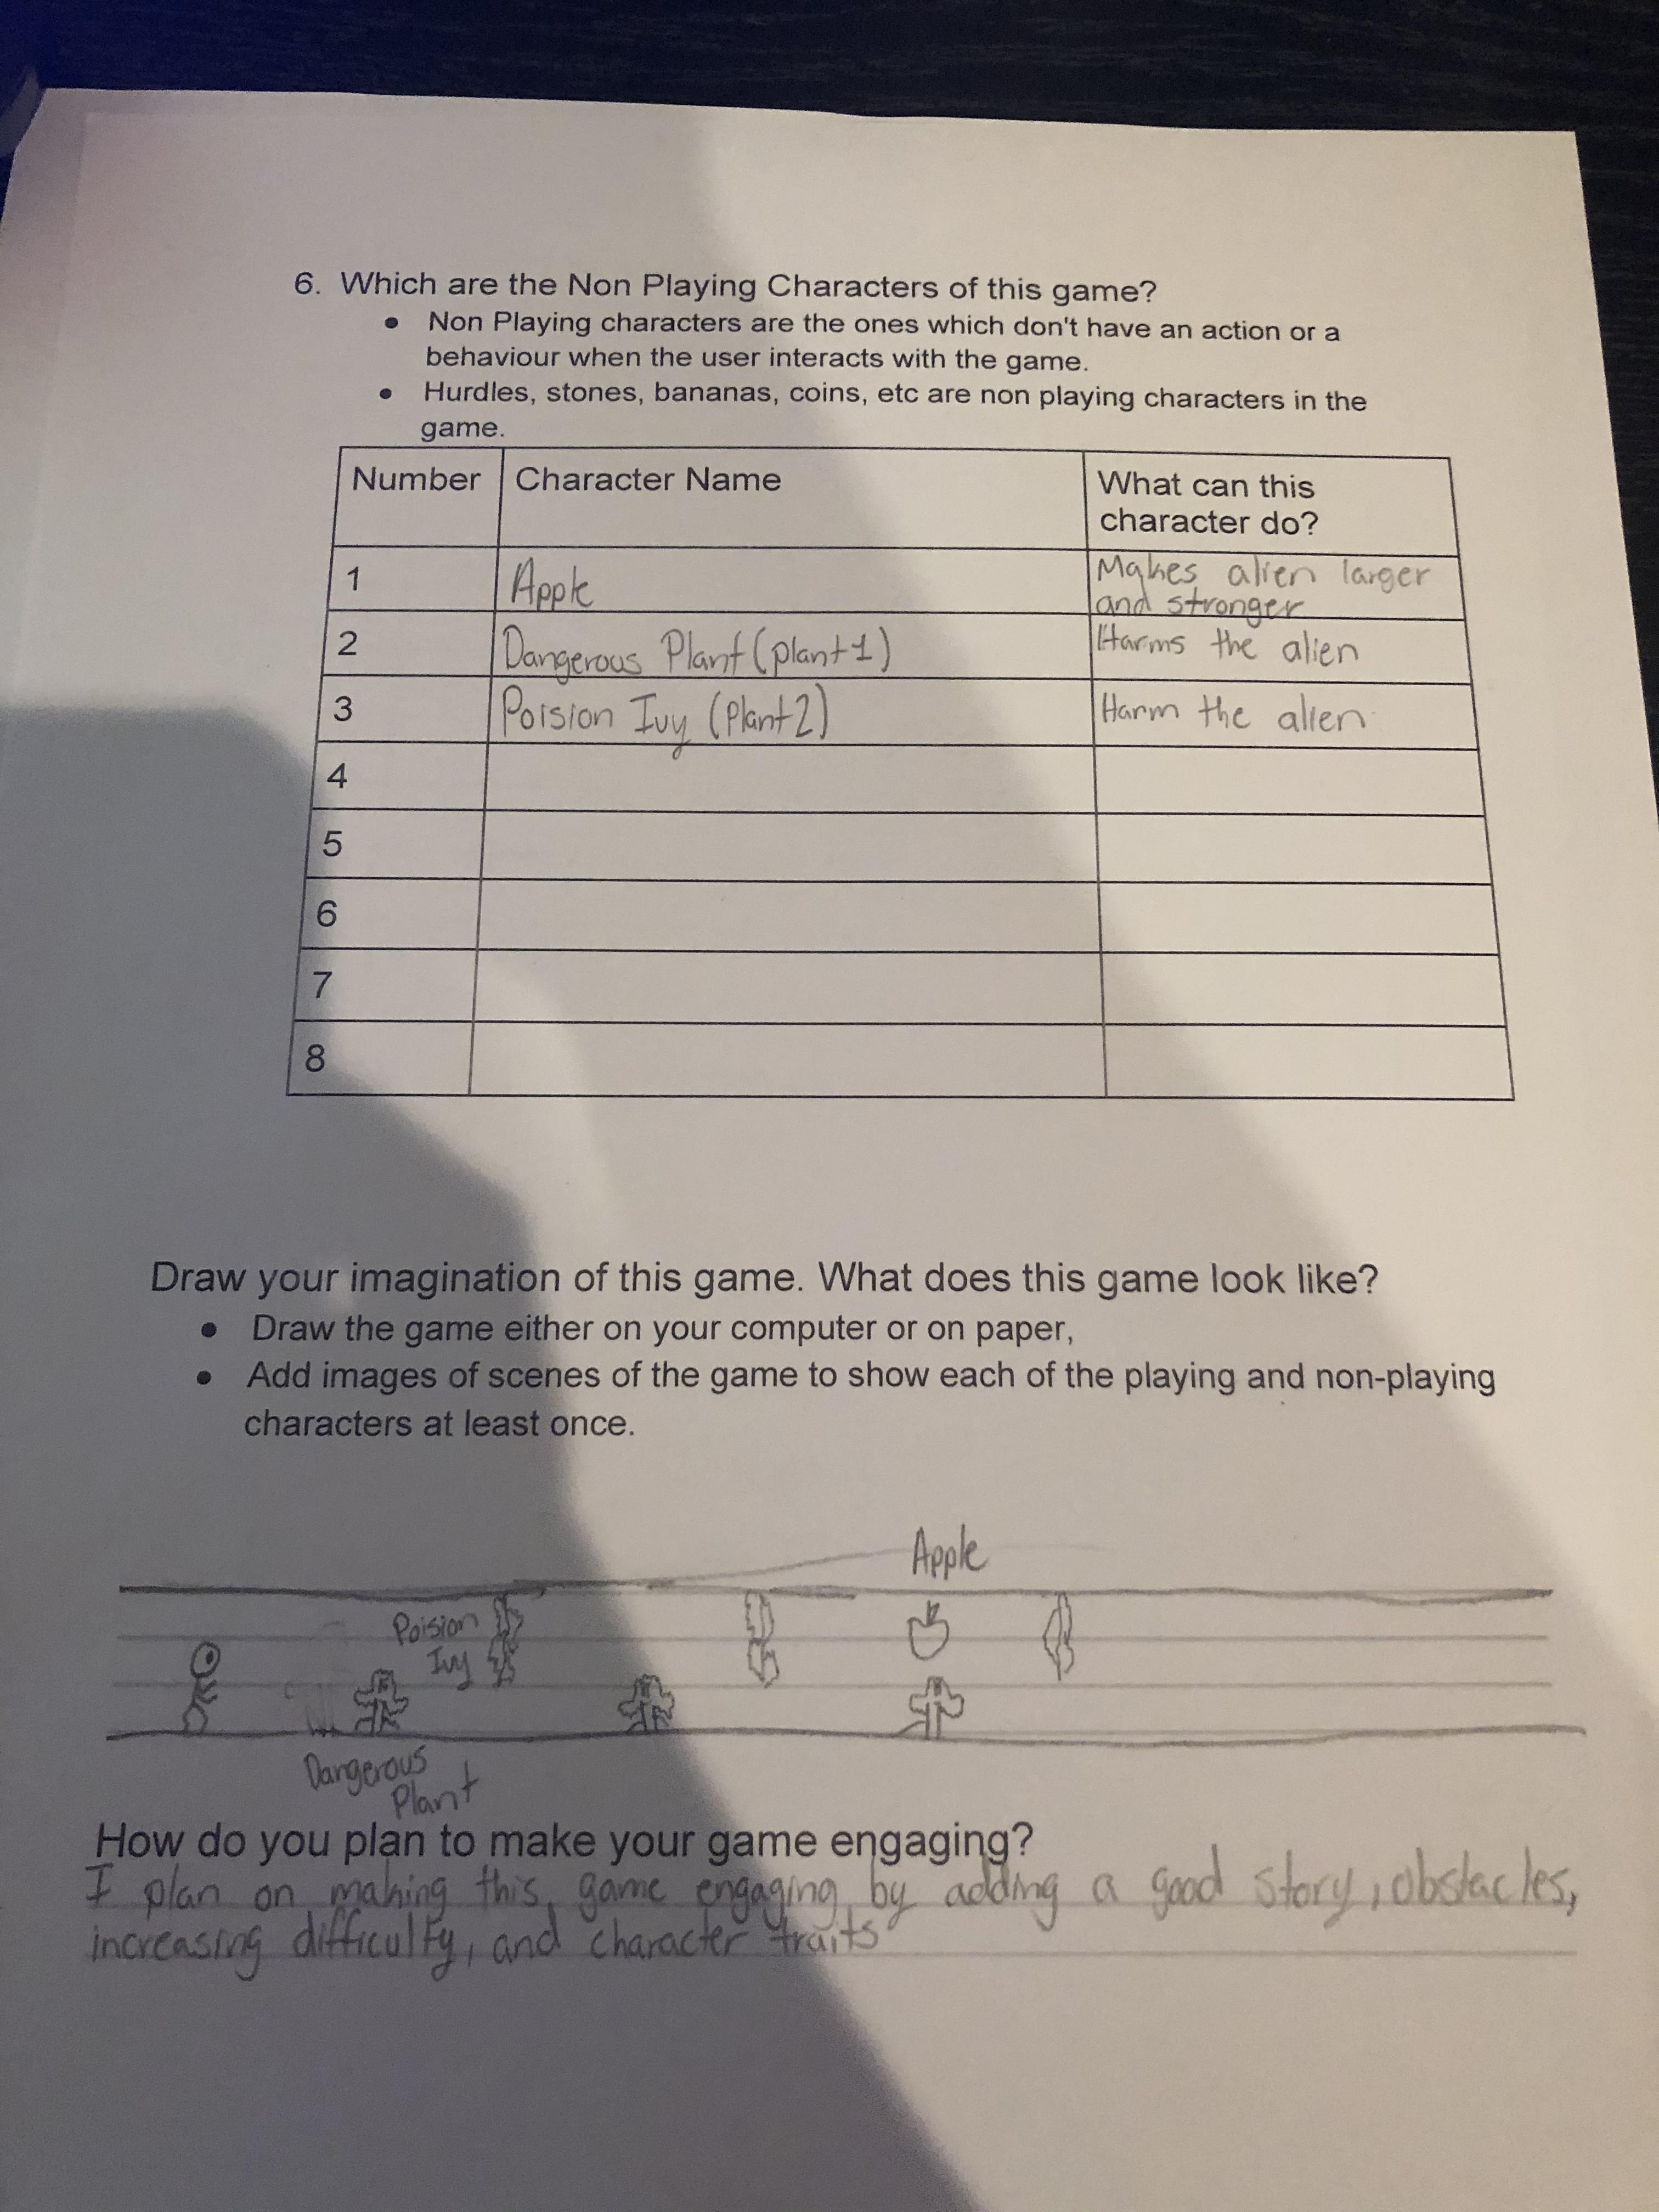 6. Which are the Non Playing Characters of this game?
• Non Playing characters are the ones which don't have an action or a
behaviour when the user interacts with the game.
• Hurdles, stones, bananas, coins, etc are non playing characters in the
game.
Number Character Name What can this
character do?
1 Apple Makes alien larger
and stronger
2 Dangerous Plant (plant 1) Harms the alien
3 Poision Ivy (Plant 2) Harm the alien
4
5
6
7
8
Draw your imagination of this game. What does this game look like?
• Draw the game either on your computer or on paper,
• Add images of scenes of the game to show each of the playing and non-playing
characters at least once.
Apple
Poision
Ivy
Dangerous
Plant
How do you plan to make your game engaging?
I plan on making this game engaging by adding a good story, obstacles,
increasing difficulty, and character traits